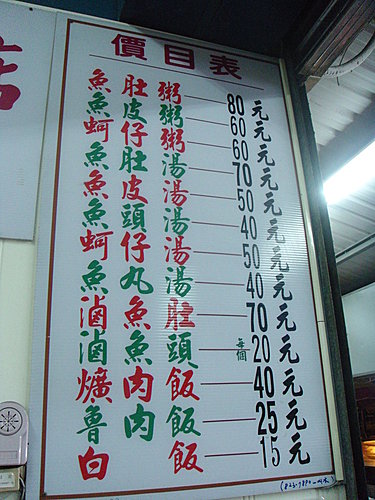 價目表
魚肚粥 80元
魚皮粥 60元
蚵仔粥 60元
魚肚湯 70元
魚皮湯 50元
魚頭湯 40元
蚵仔湯 50元
魚丸湯 40元
滷魚肚 70元
滷魚頭 每個20元
爌肉飯 40元
魯肉飯 25元
白飯 15元
店